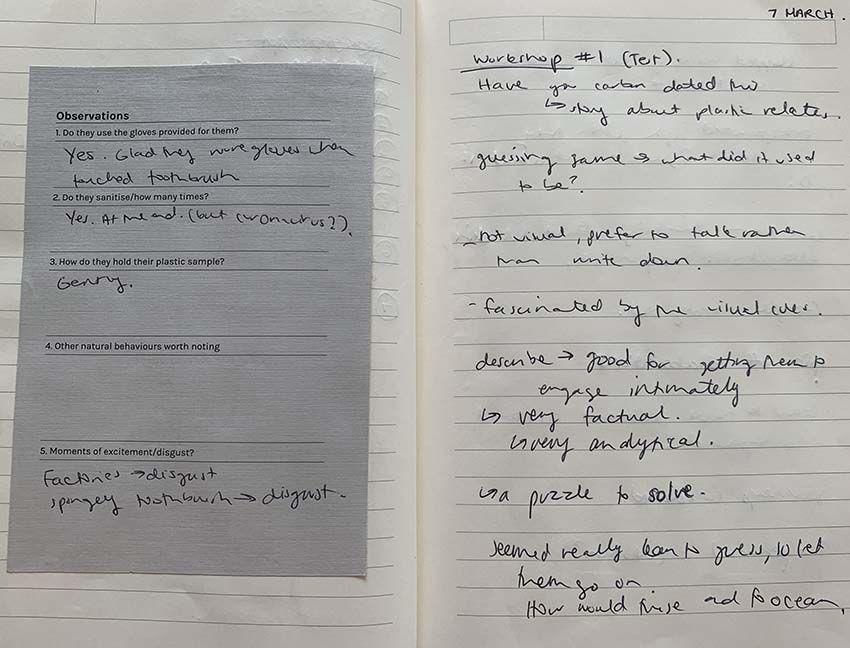 Observations
1. Do they use the gloves provided for them?
Yes. Glad they wore gloves when
touched toothbrush
2. Do they sanitise/how many times?
Yes. At the end. (but coronavirus?).
3. How do they hold their plastic sample?
Gently.
4. Other natural behaviours worth noting
5. Moments of excitement/disgust?
Factories → disgust
spongey toothbrush → disgust.
7 MARCH.
Workshop #1 (Test).
Have you carbon dated this
↳ story about plastic relates.
guessing game → what did it used
to be?
- not visual, prefer to talk rather
than write down.
- fascinated by the visual cues.
describe → good for getting them to
engage intimately
↳ very factual.
↳ very analytical.
↳ a puzzle to solve.
seemed really keen to guess, so let
them go on.
How would this end to ocean.